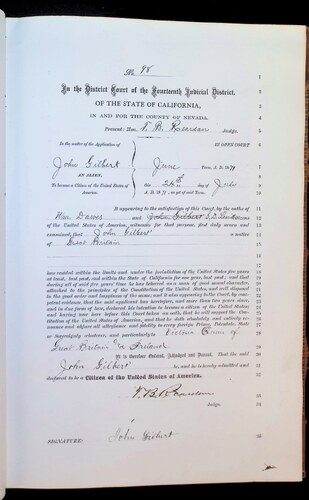 No 98
In the District Court of the Fourteenth Judicial District,
OF THE STATE OF CALIFORNIA,
IN AND FOR THE COUNTY OF NEVADA.
Present: Hon. T. B. Reardan Judge.
In the matter of the Application of IN OPEN COURT
John Gilbert June Term, A. D. 1871
AN ALIEN, this 26th day of July
To become a Citizen of the United States of America. A. D. 1871, as yet of said Term.
It appearing to the satisfaction of this Court, by the oaths of
Wm. Davies and John Gilbert citizens of the United States of
America, witnesses for that purpose, first duly sworn and
examined, that John Gilbert a native
of Great Britain
has resided within the limits and under the jurisdiction of the United States five years
at least, last past, and within the State of California for one year, last past; and that
during all of said five years' time he has behaved as a man of good moral character,
attached to the principles of the Constitution of the United States, and well disposed to
the good order and happiness of the same; and it also appearing to the Court, by competent
evidence, that the said applicant has heretofore, and more than two years since,
and in due form of law, declared his intention to become a citizen of the United States;
and having now here before this Court taken an oath, that he will support the Constitution
of the United States of America, and that he doth absolutely and entirely renounce
and abjure all allegiance and fidelity to every foreign Prince, Potentate, State
or Sovereignty whatever, and particularly to Victoria Queen of
Great Britain and Ireland
It is therefore Ordered, Adjudged and Decreed, That the said
John Gilbert be, and he is hereby admitted and
declared to be a Citizen of the United States of America.
T. B. Reardan
Judge.
SIGNATURE: John Gilbert